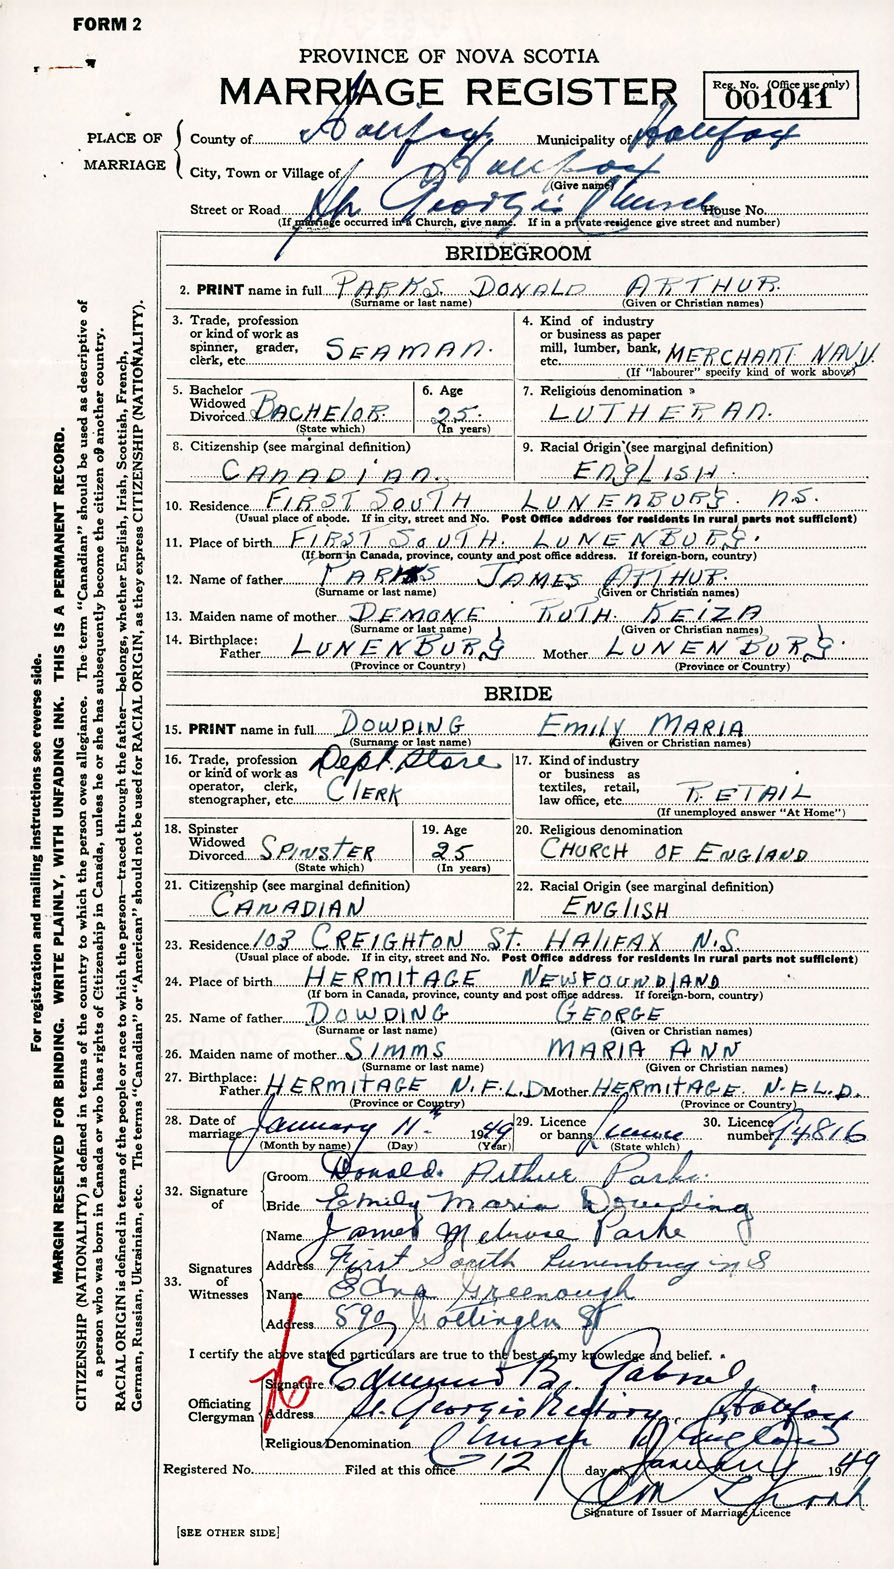 FORM 2
PROVINCE OF NOVA SCOTIA
MARRIAGE REGISTER
Reg. No. (Office use only)
001041
PLACE OF MARRIAGE
County of Halifax Municipality of Halifax
City, Town or Village of Halifax
(Give name)
Street or Road St Georgis Church House No.
(If marriage occurred in a Church, give name. If in a private residence give street and number)
BRIDEGROOM
2. PRINT name in full PARKS DONALD ARTHUR.
(Surname or last name) (Given or Christian names)
3. Trade, profession or kind of work as spinner, grader, clerk, etc. SEAMAN.
4. Kind of industry or business as paper mill, lumber, bank, etc. MERCHANT NAVY
(If "labourer" specify kind of work above)
5. Bachelor Widowed Divorced BACHELOR
(State which)
6. Age 25.
(In years)
7. Religious denomination LUTHERAN.
8. Citizenship (see marginal definition)
CANADIAN.
9. Racial Origin (see marginal definition)
ENGLISH.
10. Residence FIRST SOUTH LUNENBURG. N.S.
(Usual place of abode. If in city, street and No. Post Office address for residents in rural parts not sufficient)
11. Place of birth FIRST SOUTH. LUNENBURG.
(If born in Canada, province, county and post office address. If foreign-born, country)
12. Name of father PARKS JAMES ATTHUR.
(Surname or last name) (Given or Christian names)
13. Maiden name of mother DEMONE RUTH. KEIZA
(Surname or last name) (Given or Christian names)
14. Birthplace:
Father LUNENBURG Mother LUNENBURG.
(Province or Country) (Province or Country)
BRIDE
15. PRINT name in full DOWDING EMILY MARIA
(Surname or last name) (Given or Christian names)
16. Trade, profession or kind of work as operator, clerk, stenographer, etc. Dept. Store CLERK
17. Kind of industry or business as textiles, retail, law office, etc. RETAIL
(If unemployed answer "At Home")
18. Spinster Widowed Divorced SPINSTER
(State which)
19. Age 25
(In years)
20. Religious denomination
CHURCH OF ENGLAND
21. Citizenship (see marginal definition)
CANADIAN
22. Racial Origin (see marginal definition)
ENGLISH
23. Residence 103 CREIGHTON ST. HALIFAX N.S.
(Usual place of abode. If in city, street and No. Post Office address for residents in rural parts not sufficient)
24. Place of birth HERMITAGE NEWFOUNDLAND
(If born in Canada, province, county and post office address. If foreign-born, country)
25. Name of father DOWDING GEORGE
(Surname or last name) (Given or Christian names)
26. Maiden name of mother SIMMS MARIA ANN
(Surname or last name) (Given or Christian names)
27. Birthplace:
Father HERMITAGE N.F.L.D Mother HERMITAGE N.F.L.D.
(Province or Country) (Province or Country)
28. Date of marriage January 11th 1949
(Month by name) (Day) (Year)
29. Licence or banns Licence
(State which)
30. Licence number 74816
32. Signature of
Groom Donald. Arthur Parks.
Bride Emily Maria Dowding
33. Signatures of Witnesses
Name James Melrose Parks
Address First South Lunenburg N S
Name Edna Greenough
Address 590 Gottingen St
I certify the above stated particulars are true to the best of my knowledge and belief.
Officiating Clergyman
Signature Edmund B. Gabriel
Address St. Georgis Rectory, Halifax
Religious Denomination Church of England
Registered No. Filed at this office 12 day of January 1949
Signature of Issuer of Marriage Licence
[SEE OTHER SIDE]
For registration and mailing instructions see reverse side.
MARGIN RESERVED FOR BINDING. WRITE PLAINLY, WITH UNFADING INK. THIS IS A PERMANENT RECORD.
CITIZENSHIP (NATIONALITY) is defined in terms of the country to which the person owes allegiance. The term "Canadian" should be used as descriptive of
a person who was born in Canada or who has rights of Citizenship in Canada, unless he or she has subsequently become the citizen of another country.
RACIAL ORIGIN is defined in terms of the people or race to which the person—traced through the father—belongs, whether English, Irish, Scottish, French,
German, Russian, Ukrainian, etc. The terms "Canadian" or "American" should not be used for RACIAL ORIGIN, as they express CITIZENSHIP (NATIONALITY).